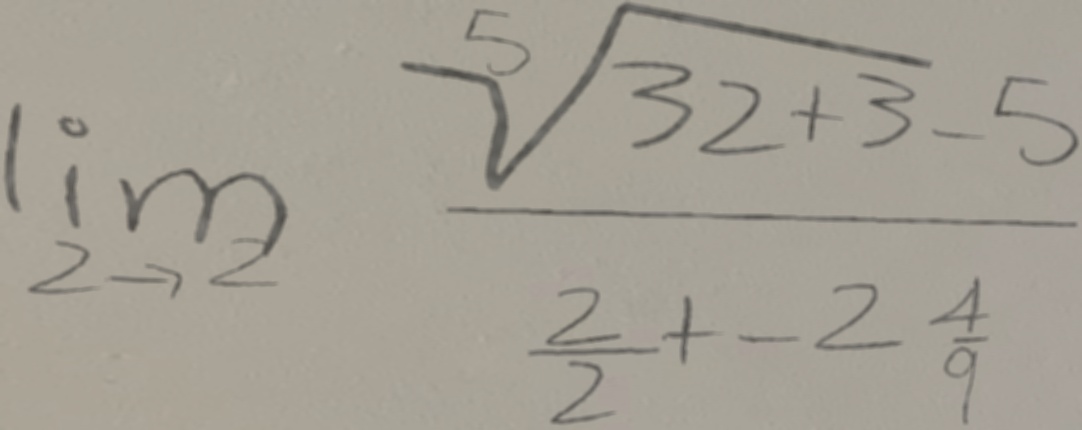 lim_{2→2} \frac{\sqrt[5]{32+3}-5}{\frac{2}{2}+-2\frac{4}{9}}